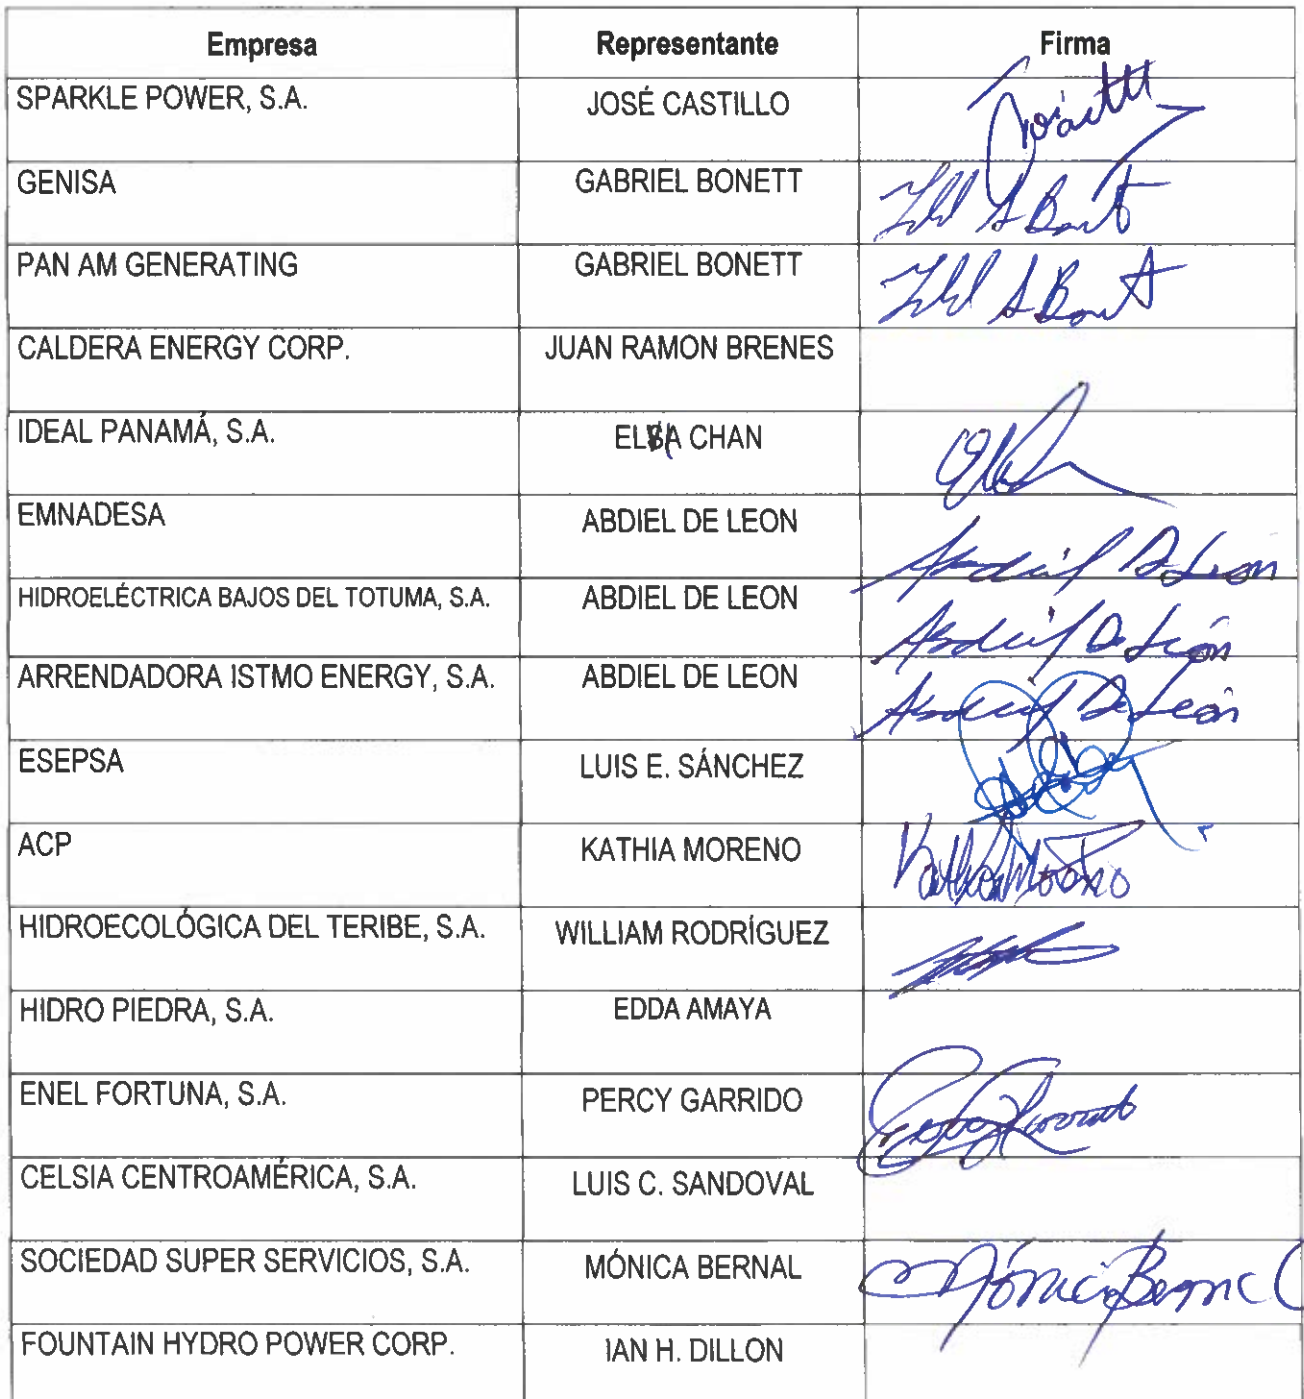 Empresa Representante Firma
SPARKLE POWER, S.A. JOSÉ CASTILLO
GENISA GABRIEL BONETT
PAN AM GENERATING GABRIEL BONETT
CALDERA ENERGY CORP. JUAN RAMON BRENES
IDEAL PANAMÁ, S.A. CHAN
EMNADESA ABDIEL DE LEON Abdiel De León
HIDROELÉCTRICA BAJOS DEL TOTUMA, S.A. ABDIEL DE LEON Abdiel De León
ARRENDADORA ISTMO ENERGY, S.A. ABDIEL DE LEON Abdiel De León
ESEPSA LUIS E. SÁNCHEZ
ACP KATHIA MORENO Kathia Moreno
HIDROECOLÓGICA DEL TERIBE, S.A. WILLIAM RODRÍGUEZ
HIDRO PIEDRA, S.A. EDDA AMAYA
ENEL FORTUNA, S.A. PERCY GARRIDO
CELSIA CENTROAMÉRICA, S.A. LUIS C. SANDOVAL
SOCIEDAD SUPER SERVICIOS, S.A. MÓNICA BERNAL Mónica Bernal
FOUNTAIN HYDRO POWER CORP. IAN H. DILLON